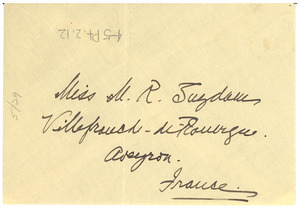 4-5 P4.2.12
5/29
Miss M. R. Suydam
Villefranch-de-Rouergue.
Aveyron.
France.